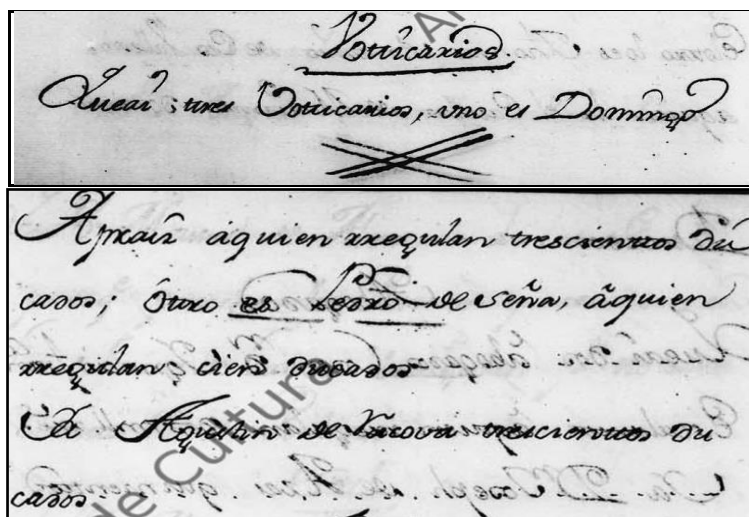 Votticarios
Que ai; tres Votticarios, vno es Domingo
Apraiz aquien rregulan trescienttos du
cados; Ottro es Pedro de seña, aquien
rregulan cien ducados
A Agustin de trescienttos du
cados
de Cultura